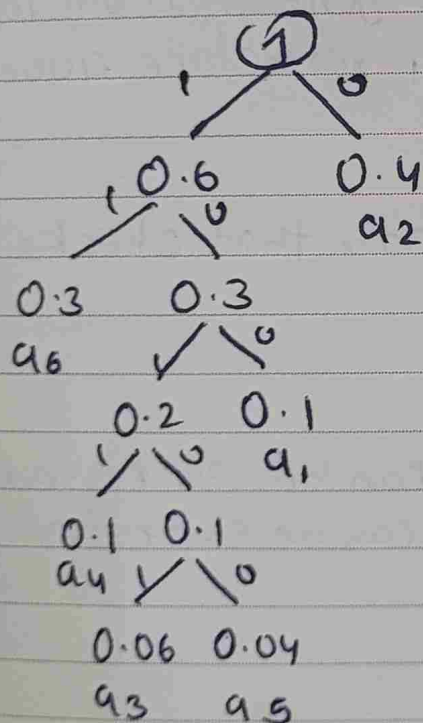 1
1 0
0.6 0.4
a2
1 0
0.3 0.3
a6
1 0
0.2 0.1
a1
1 0
0.1 0.1
a4
1 0
0.06 0.04
a3 a5